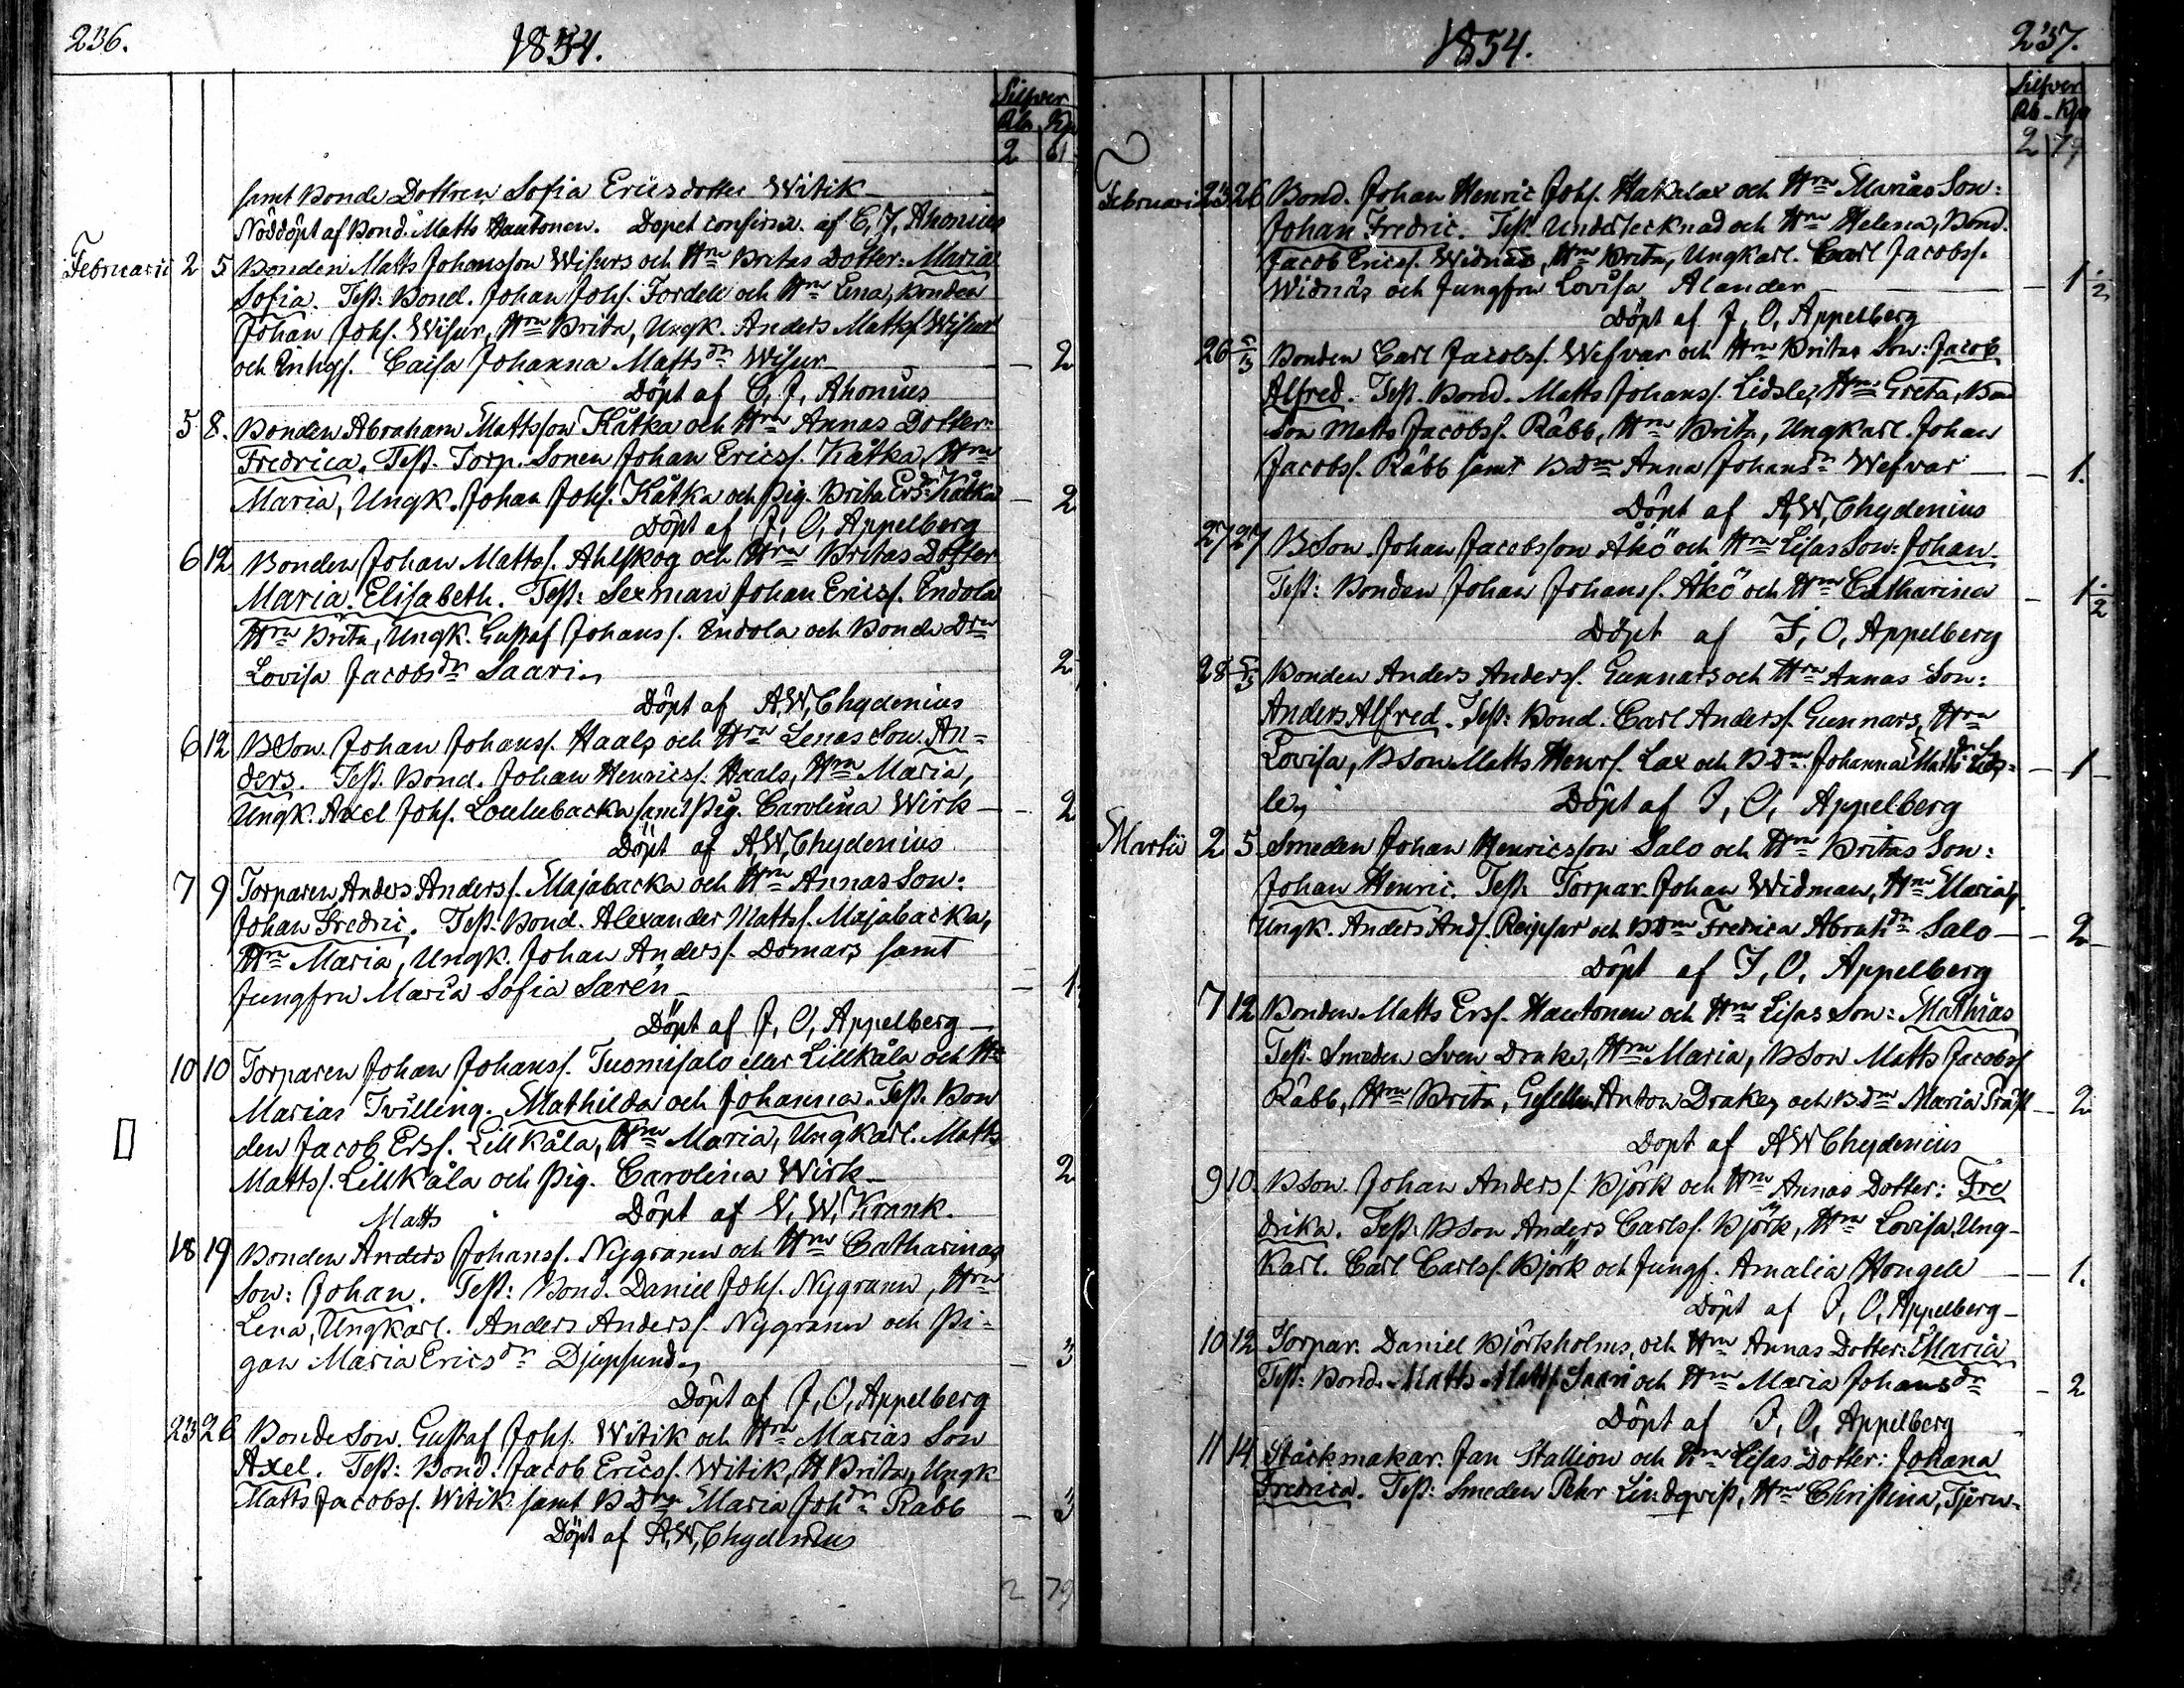 236.
1854.
Silfver
Rb. Kp.
2 61
samt Bonde Dottren Sofia Ericsdotter Witik
Nöddöpt af Bond. Matts Hautonen. Dopet confirm. af C, J, Ahonius
Februarii 2 5 Bonden Matts Johansson Wisurs och Hru Britas Dotter: Maria
Sofia. Test: Bond. Johan Johs. Fordell och Hru Lena, Bonden
Johan Johs. Wisur, Hru Brita, Ungk. Anders Matts. Wisur
och Caisa Johanna Mattsdr Wisur — 2
Döpt af C, J, Ahonius
5 8. Bonden Abraham Mattsson Kåtka och Hru Annas Dotter:
Fredrica. Test. Torp. Sonen Johan Ericss. Kåtka, Hru
Maria, Ungk. Johan Johs. Kåtka och Pig. Brita Ersdr Kåtka — 2
Döpt af J, O, Appelberg
6 12 Bonden Johan Matts. Ahlskog och Hru Britas Dotter
Maria Elisabeth. Test: Sexman Johan Ericss. Endola
Hru Brita, Ungk. Gustaf Johanss. Endola och Bonde Dru
Lovisa Jacobsdr Saari, 2
Döpt af A, W, Chydenius
6 12 BSon. Johan Johanss. Haals och Hru Lenas Son. An=
ders. Test. Bond. Johan Henricss. Haals, Hru Maria,
Ungk. Axel Johs. samt Pig. Carolina Wirk — 2
Döpt af A, W, Chydenius
7 9 Torparen Anders Anderss. Majabacka och Hru Annas Son:
Johan Fredric. Test. Bond. Alexander Mattss. Majabacka,
Hru Maria, Ungk. Johan Anderss. Domars samt
Jungfru Maria Sofia Sarén — 1.
Döpt af J, O, Appelberg —
10 10 Torparen Johan Johanss. Tuomisalo eller Lillkåla och Hru
Marias Tvilling. Mathilda och Johanna. Test. Bon
den Jacob Erss. Lillkåla, Hru Maria, Ungkarl. Matts
Mattss. Lillkåla och Pig. Carolina Wirk — 2
Döpt af N, W, Krank.
Matts
18 19 Bonden Anders Johanss. Nygrann och Hru Catharinas
Son: Johan. Test: Bond. Daniel Johs. Nygrann, Hru
Lena, Ungkarl. Anders Anderss. Nygrann och Pi=
gan Maria Ericsdr Djupsund, — 3
Döpt af J, O, Appelberg
23 26 Bonde Son. Gustaf Johs. Witik och Hru Marias Son
Axel. Test: Bond. Jacob Ericss. Witik, H Brita, Ungk
Matts Jacobss. Witik samt BDru Maria Johdr Rabb — 3
Döpt af A, W, Chydenius
2 79
1854.
237.
Silfver
Rb. Kp
2 79
Februarii 23 26 Bond. Johan Henric Johs. Hakalax och Hru Marias Son:
Johan Fredric. Test. Undertecknad och Hru Helena, Bond.
Jacob Ericss. Widnäs, Hru Brita, Ungkarl. Carl Jacobss.
Widnäs och Jungfru Lovisa Alander — 1 1/2
Döpt af J, O, Appelberg
26 5/3 Bonden Carl Jacobss. Wefvar och Hru Britas Son: Jacob
Alfred. Test. Bond. Matts Johanss. Lidsle, Hru Greta, Bond
Son Matts Jacobss. Räbb, Hru Brita, Ungkarl. Johan
Jacobss. Räbb samt BDru Anna Johansdr Wefvar — 1.
Döpt af A, W, Chydenius
27 27 BSon. Johan Jacobsson Åkö och Hru Lisas Son: Johan.
Test: Bonden Johan Johanss. Åkö och Hru Catharina — 1 1/2
Döpt af J, O, Appelberg
28 5/3 Bonden Anders Anderss. Gunnars och Hru Annas Son:
Anders Alfred. Test: Bond. Carl Anderss. Gunnars, Hru
Lovisa, BSon Matts Henrs. Lax och BDru Johanna Mattsdr Lids= — 1
le, Döpt af J, O, Appelberg
Martii 2 5 Smeden Johan Henricsson Salo och Hru Britas Son:
Johan Henric. Test: Torpar. Johan Widman, Hru Maria,
Ungk. Anders Ands. och BDru Fredrica Abrahdr Salo — 2
Döpt af J, O, Appelberg
7 12 Bonden Matts Erss. Hautonen och Hru Lisas Son: Mathias
Test. Smeden Sven Drake, Hru Maria, BSon Matts Jacobss
Räbb, Hru Brita, Gesellen Anton Drake, och BDru Maria — 2
Döpt af A W Chydenius
9 10. BSon. Johan Anderss. Björk och Hru Annas Dotter: Fre
drika. Test: BSon Anders Carlss. Björk, Hru Lovisa, Ung-
karl. Carl Carlss. Björk och Jungf. Amalia Hongell — 1.
Döpt af J, O, Appelberg —
10 12 Torpar. Daniel Björkholms, och Hru Annas Dotter: Maria
Test: Bond. Matts Matts Saari och Hru Maria Johansdr — 2
Döpt af J, O, Appelberg
11 14 Stäckmakar. Jan Stallion och Hru Lisas Dotter: Johana
Fredrica. Test: Smeden Pehr Lindqvist, Hru Christina, Tjern-